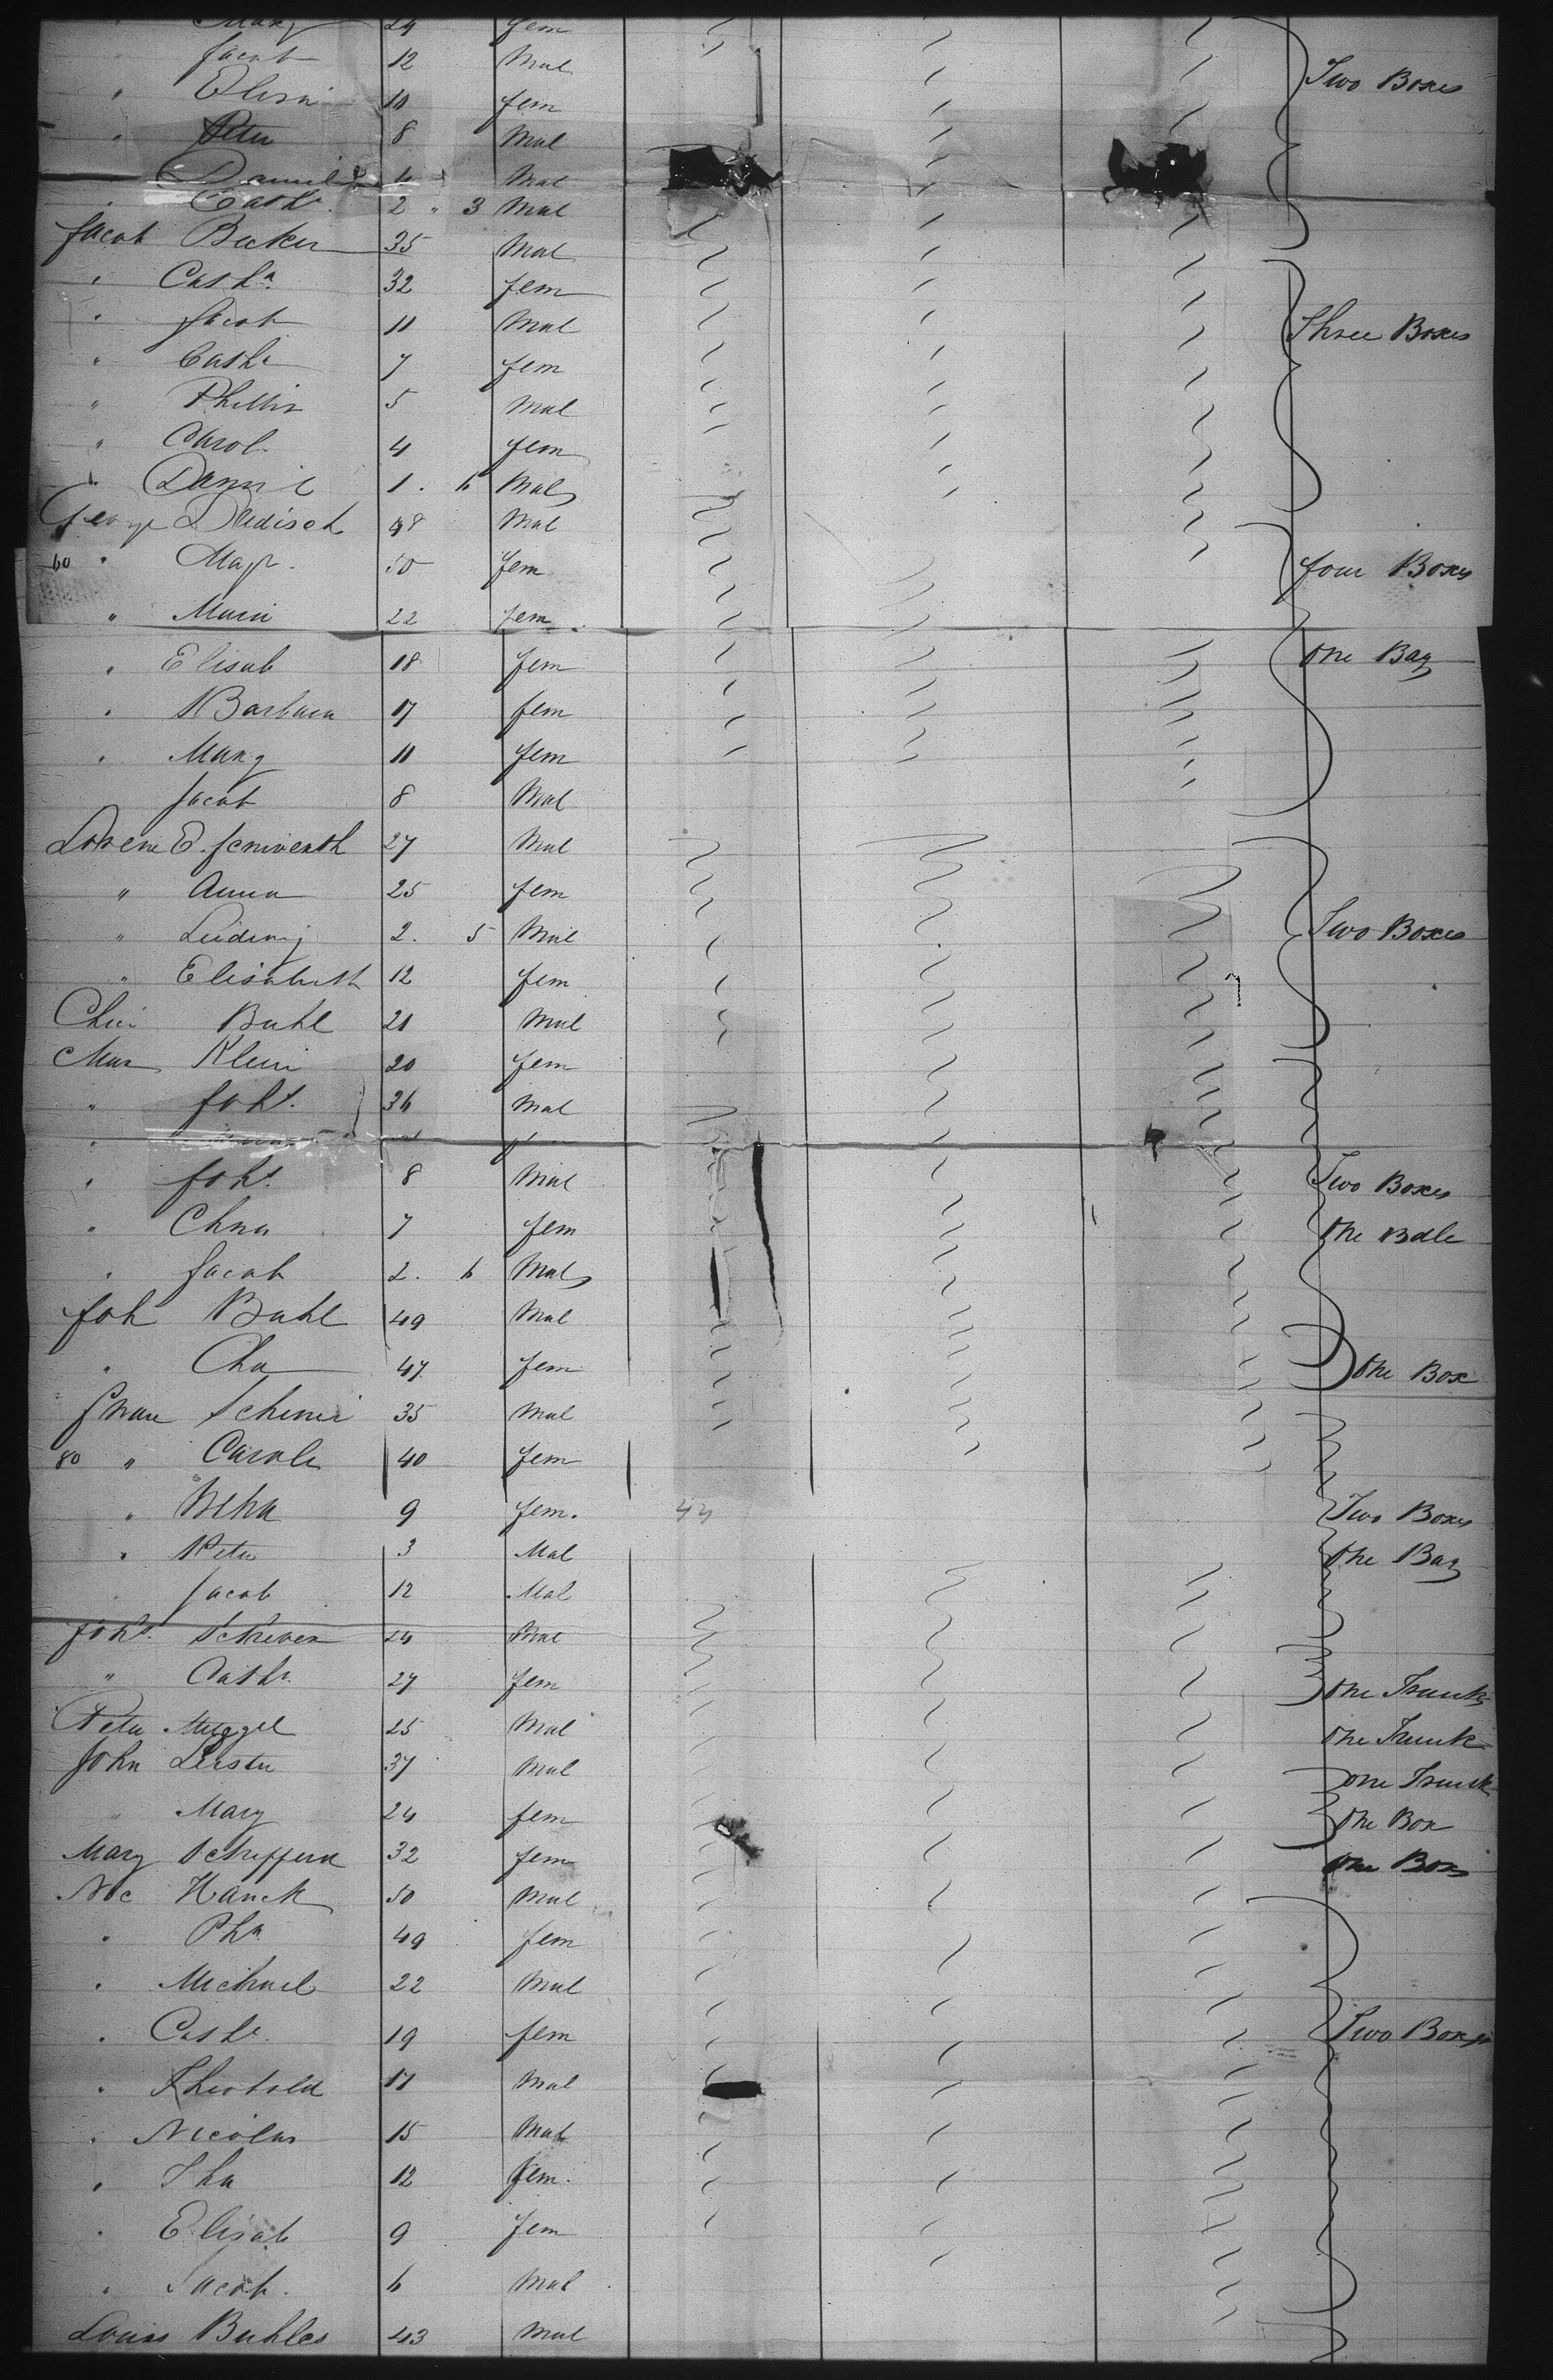 " Mary 24 fem
" Jacob 12 Mal Two Boxes
" Elisa 10 fem
" Peter 8 Mal
" Daniel 4 Mal
" Cath. 2 " 3 Mal
Jacob Becker 35 Mal
" Cath.a 32 fem
" Jacob 11 Mal Three Boxes
" Cath. 7 fem
" Phillip 5 Mal
" Carol. 4 fem
" Daniel 1. 6 Mal
George Dledisch 48 Mal
60 " Magr. 50 fem four Boxes
" Maria 22 fem
" Elisab 18 fem One Bag
" Barbara 17 fem
" Marg 11 fem
Jacob 8 Mal
27 Mal
" Anna 25 fem
" Ludwig 2. 5 Mal Two Boxes
" Elisabeth 12 fem
Chri Buhl 21 Mal
Mar Klein 20 fem
" Joh. 36 Mal
" Joh. 8 Mal Two Boxes
" Chna 7 fem One Bdle
" Jacob 2. 6 Mal
Joh Buhl 49 Mal
" Cha 47 fem One Box
35 Mal
80 " Carole 40 fem
" 9 fem. 44 Two Boxes
" Peter 3 Mal One Bag
" Jacob 12 Mal
Joh. Schriver 24 Mal
" Cath. 27 fem One Trunk
Peter Muggel 25 Mal One Trunk
John Lerster 37 Mal one Trunk
" Mary 24 fem One Box
Mary Scheffern 32 fem One Box
Nic Hanck 50 Mal
" Pha 49 fem
" Michael 22 Mal
" Cath. 19 fem Two Boxes
" Theobold 17 Mal
" Nicolas 15 Mal
" 12 fem.
" Elisab 9 fem
" Jacob. 6 Mal
Louis Buhles 43 Mal